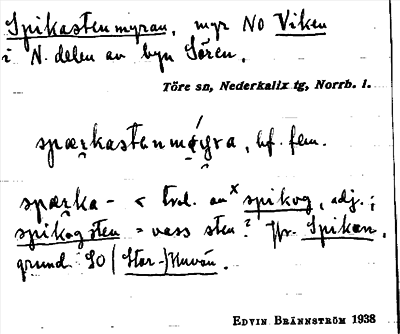 Spikastenmyran, myr NO Viken
i N. delen av byn Sören.
Töre sn, Nederkalix tg, Norrb. l.
spærkastenmǿyra, bf. fem.
spærka- < trol. av ˣspikog, adj.;
spikogsten = vass sten? Jfr. Spikan,
grund SO (Stor-)Huvön.
EDVIN BRÄNNSTRÖM 1938